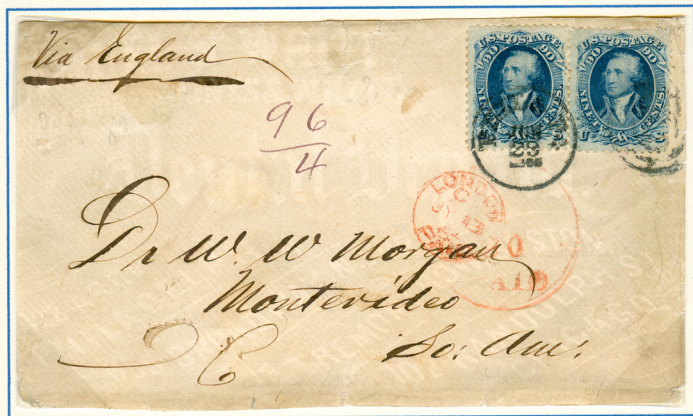 Via England
U.S. POSTAGE
90 90
NINETY CENTS.
U S
U.S. POSTAGE
90 90
NINETY CENTS.
U S
96
4
LONDON
PAID
Dr W. W Morgan
Montevideo
So: Am: